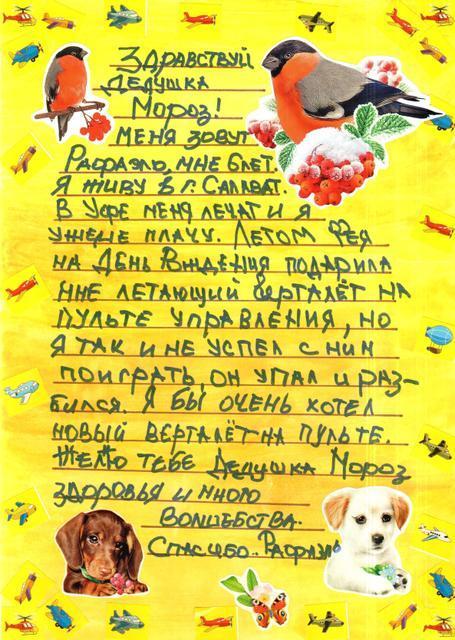 Здравствуй
Дедушка
Мороз!
Меня зовут
Рафаэль, мне 6лет.
Я живу в г. Салават.
В Уфе меня лечат и я
уженe плачу. Летом Фея
на День Рждения подарила
мне летающий верталёт на
пульте управления, но
я так и не успел с ним
поиграть, он упал и раз-
бился. Я бы очень хотел
новый верталёт на пульте.
Желю тебе Дедушка Мороз
здоровья и много
волшебства.
Спасибо.. Рафаэль